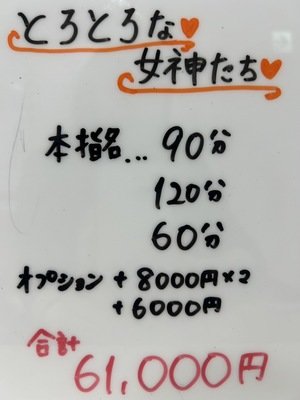 とろとろな♥
女神たち♥
本指名... 90分
120分
60分
オプション + 8000円×2
+ 6000円
合計
61,000円